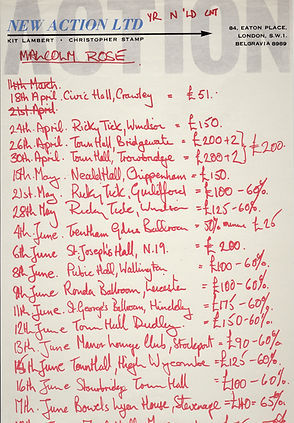 ACTION
YR N 'LD CNT
NEW ACTION LTD
KIT LAMBERT · CHRISTOPHER STAMP
84, EATON PLACE,
LONDON, S.W.1.
BELGRAVIA 8989
MALCOLM ROSE
14th March.
18th April. Civic Hall, Crawley = £51.
21st April.
24th April. Ricky Tick, Windsor = £150.
26th April. Town Hall Bridgewater = £200+2
30th April. Town Hall, Trowbridge = £200+2 } £200.
15th May. Neald Hall, Chippenham = £150.
21st May. Ricky Tick, Guildford = £100-60%
28th May Ricky Tick, Windsor = £125-60%.
4th June. Trentham Gdns Ballroom = 50% minus £25
6th June St Joseph's Hall, N.19. = £200.
8th June. Public Hall, Wallington = £100-60%.
9th June Ronda Ballroom, Leicester = £100-60%.
11th June. St. George's Ballroom, Hinckley = £175-60%
12th June Town Hall Dudley. = £150-60%.
13th June Manor Lounge Club, Stockport = £90-60%
15th June Town Hall, High Wycombe = £125-60%.
16th June Stourbridge Town Hall = £100-60%.
17th June Bowes Lyon House, Stevenage = £140=65%.